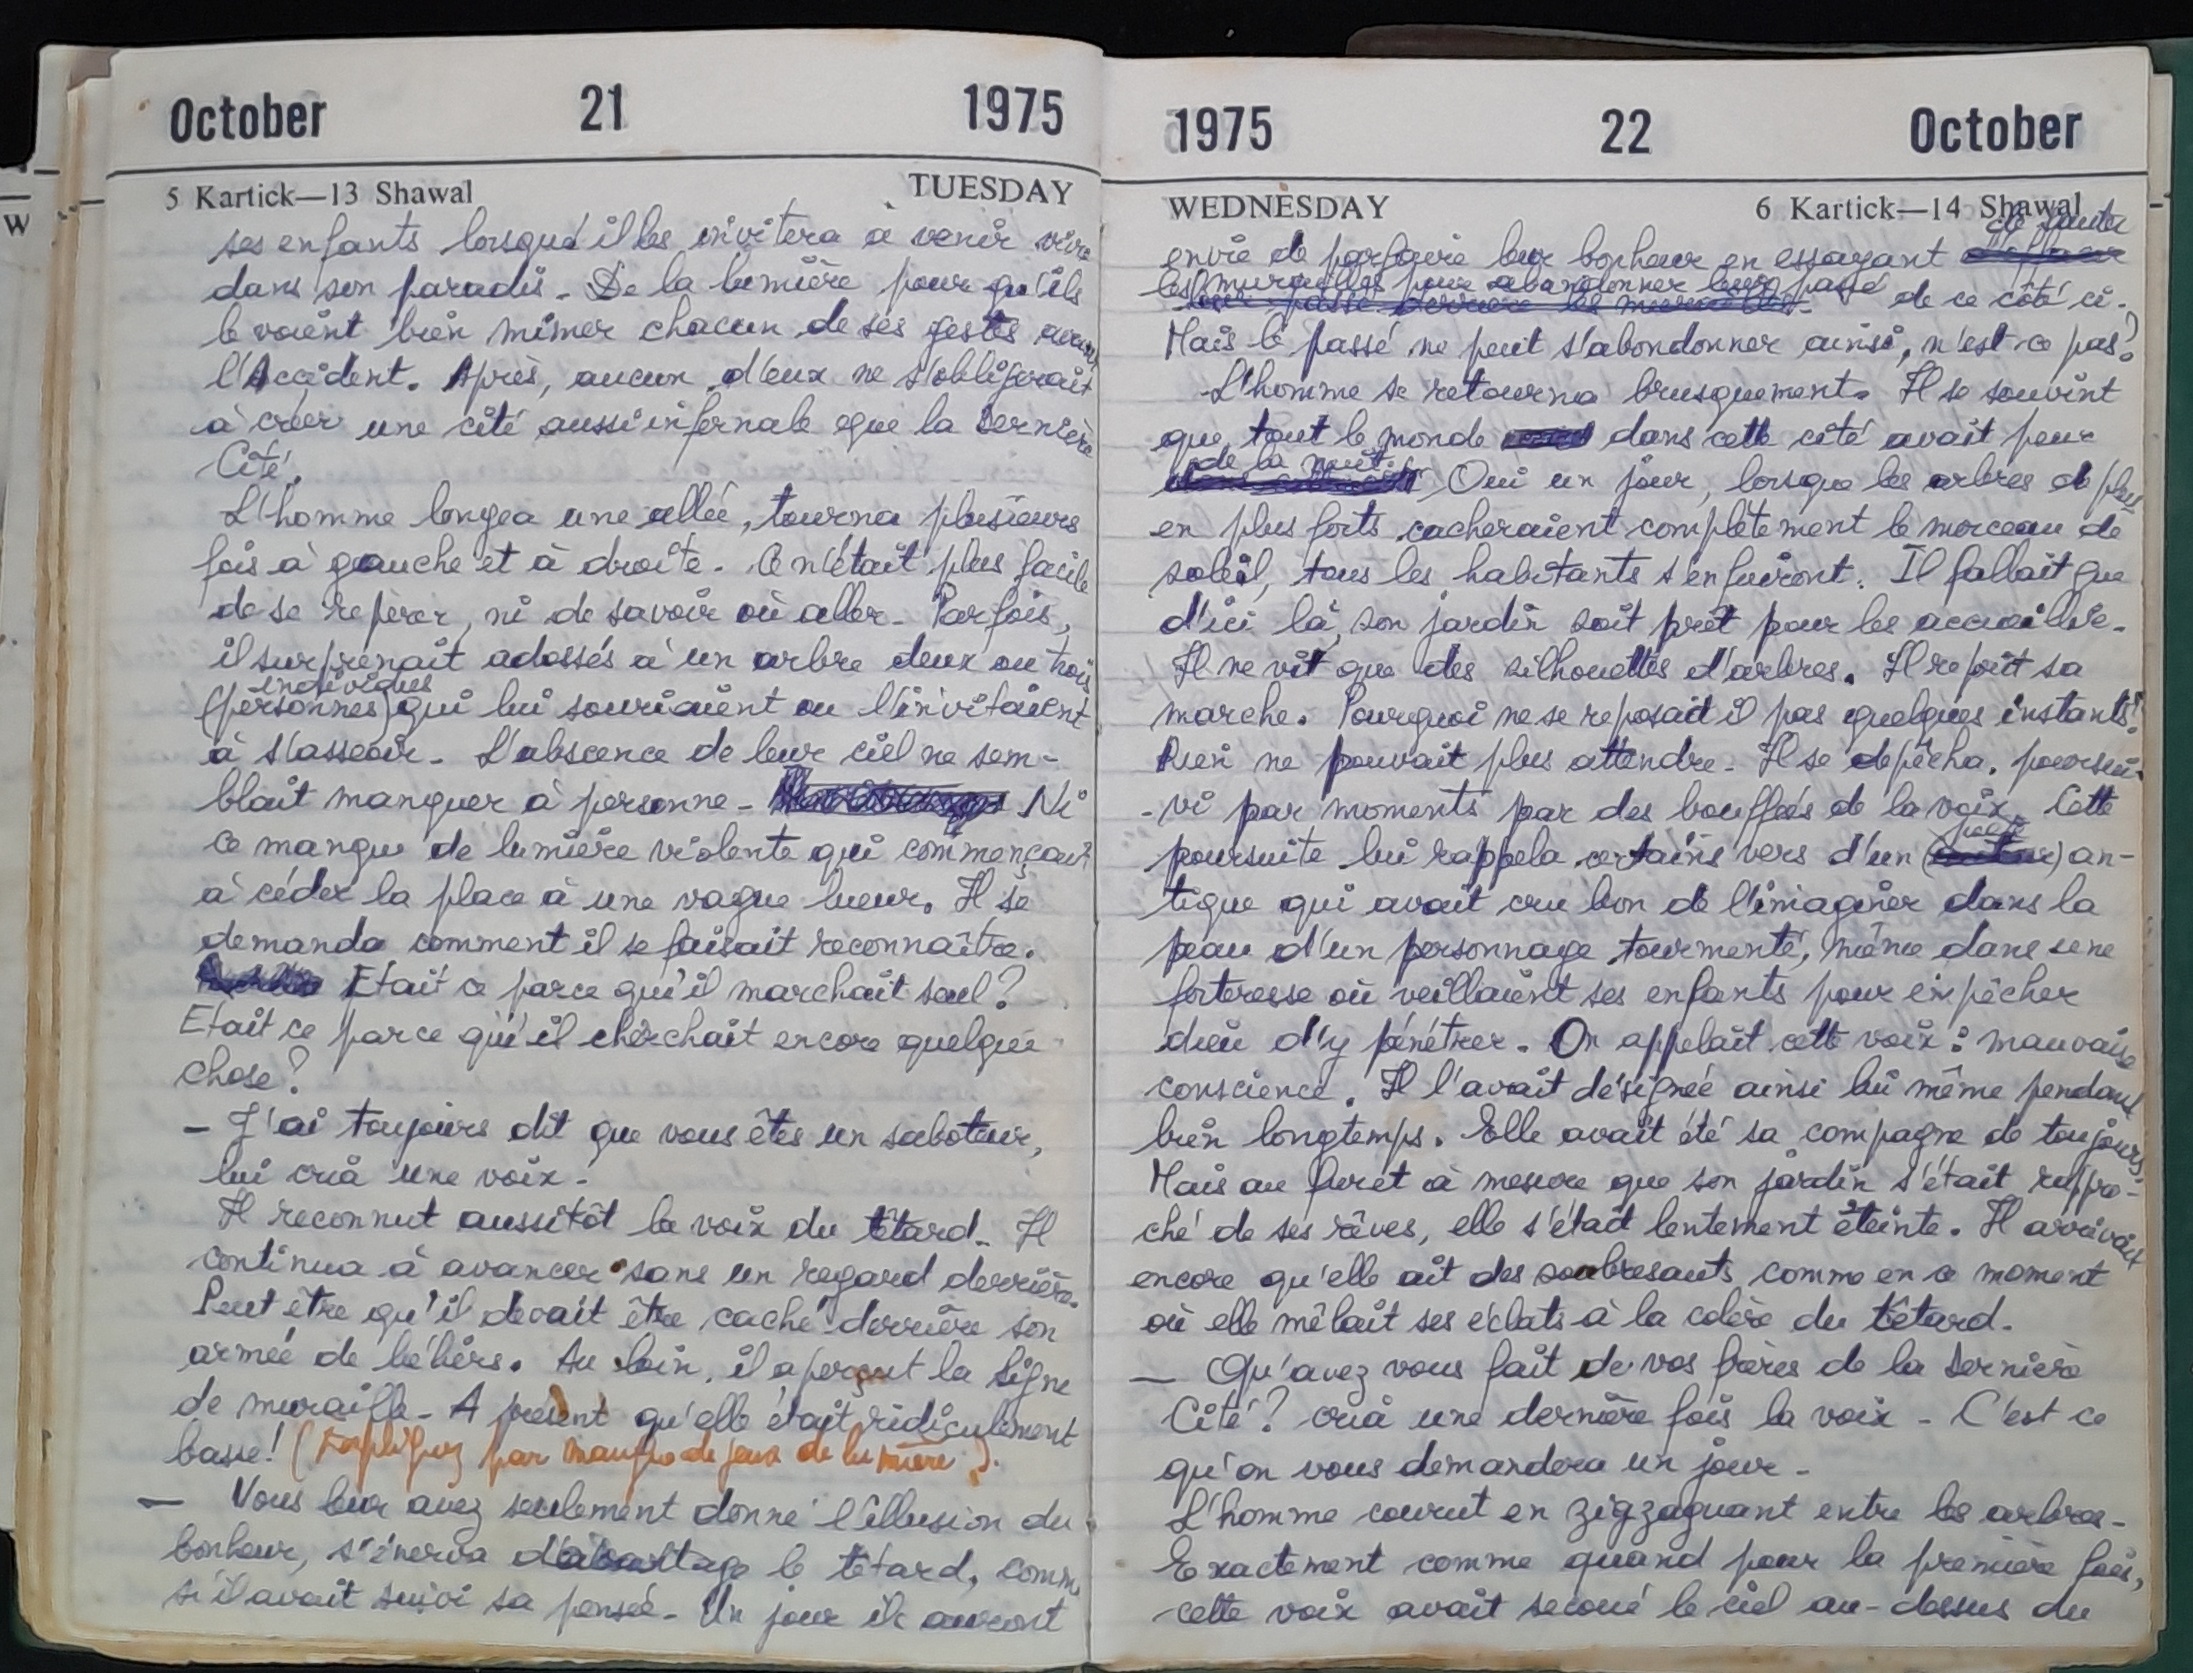 October 21 1975
5 Kartick—13 Shawal TUESDAY
ses enfants lorsqu'il les invitera à venir vivre
dans son paradis. De la lumière pour qu'ils
le voient bien mimer chacun de ses gestes avant
l'Accident. Après, aucun d'eux ne s'obligerait
à créer une cité aussi infernale que la Dernière
Cité.
L'homme longea une allée, tourna plusieurs
fois à gauche et à droite. Ce n'était plus facile
de se repérer, ni de savoir où aller. Parfois,
il surprenait adossés à un arbre deux ou trois
individus
(personnes) qui lui souriaient ou l'invitaient
à s'asseoir. L'abscence de leur ciel ne sem-
blait manquer à personne. Ni
ce manque de lumière violente qui commençait
à céder la place à une vague lueur. Il se
demanda comment il se faisait reconnaître.
Etait ce parce qu'il marchait seul?
Etait ce parce qu'il cherchait encore quelque
chose?
- J'ai toujours dit que vous êtes un saboteur,
lui cria une voix.
Il reconnut aussitôt la voix du têtard. Il
continua à avancer sans un regard derrière.
Peut être qu'il devait être caché derrière son
armée de béhers. Au loin, il aperçut la ligne
de muraille. A présent qu'elle était ridiculement
basse! (Expliquez par manque de jeux de lumière).
- Vous leur avez seulement donné l'illusion du
bonheur, s'énerva davantage le têtard, comme
s'il avait suivi sa pensée. Un jour ils auront
1975 22 October
WEDNESDAY 6 Kartick—14 Shawal
de sauter
envie de parfaire leur bonheur en essayant
les murailles pour abandonner leur passé de ce côté ci.
Mais le passé ne peut s'abondonner ainsi, n'est-ce pas?
L'homme se retourna brusquement. Il se souvint
que tout le monde dans cette cité avait peur
de la nuit. Oui un jour, lorsque les arbres de plus
en plus forts cacheraient complètement le morceau de
soleil, tous les habitants s'enfuiront. Il fallait que
d'ici là, son jardin soit prêt pour les accueillir.
Il ne vit que des silhouettes d'arbres. Il reprit sa
marche. Pourquoi ne se reposait il pas quelques instants?
Rien ne pouvait plus attendre. Il se dépêcha, poursui-
-vi par moments par des bouffées de la voix. Cette
poursuite lui rappela certains vers d'un (auteur) an-
tique qui avait cru bon de l'imaginer dans la
peau d'un personnage tourmenté, même dans une
forteresse où veillaient ses enfants pour empêcher
dieu d'y pénétrer. On appelait cette voix : mauvaise
conscience. Il l'avait désignée ainsi lui même pendant
bien longtemps. Elle avait été sa compagne de toujours.
Mais au fur et à mesure que son jardin s'était rappro-
ché de ses rêves, elle s'était lentement éteinte. Il arrivait
encore qu'elle ait des soubresauts comme en ce moment
où elle mêlait ses éclats à la colère du têtard.
- Qu'avez vous fait de vos frères de la Dernière
Cité? cria une dernière fois la voix - C'est ce
qu'on vous demandera un jour.
L'homme courut en zigzaguant entre les arbres.
Exactement comme quand pour la première fois,
cette voix avait secoué le ciel au-dessus du